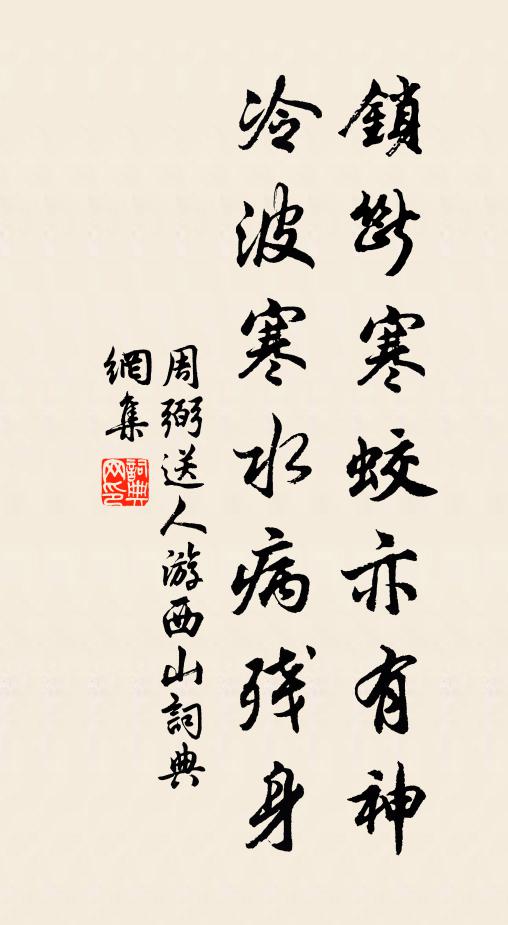 鎖斷寒蛟亦有神
冷波寒水病残身
周弼送人游西山詞典
網集
詞典网印